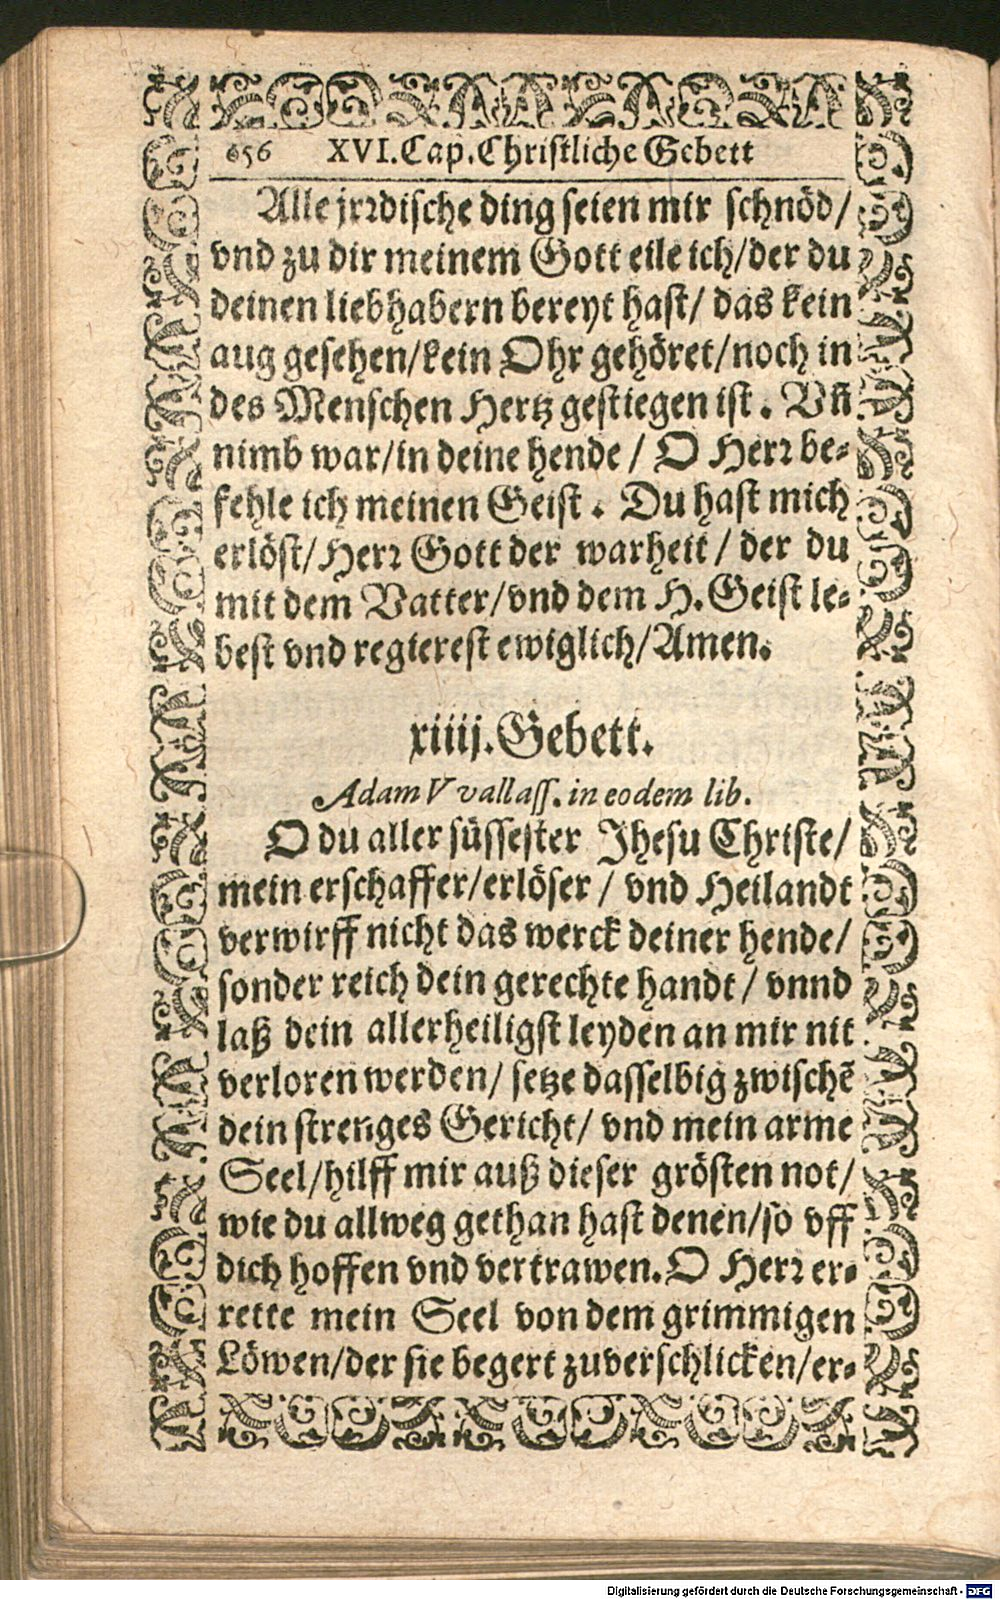 656 XVI.Cap.Christliche Gebett
Alle jrꝛdische ding seien mir schnöd/
vnd zu dir meinem Gott eile ich/der du
deinen liebhabern bereyt hast/ das kein
aug gesehen/kein Ohr gehöret/noch in
des Menschen Hertz gestiegen ist. Vñ
nimb war/in deine hende / O Herꝛ be-
fehle ich meinen Geist. Du hast mich
erlöst/Herꝛ Gott der warheit / der du
mit dem Vatter/vnd dem H. Geist le-
best vnd regierest ewiglich/Amen.
xiiij. Gebett.
Adam VVallass. in eodem lib.
O du aller süssester Jhesu Christe/
mein erschaffer/erlöser / vnd Heilandt
verwirff nicht das werck deiner hende/
sonder reich dein gerechte handt / vnnd
laß dein allerheiligst leyden an mir nit
verloren werden/ setze dasselbig zwischẽ
dein strenges Gericht/ vnd mein arme
Seel/hilff mir auß dieser grösten not/
wie du allweg gethan hast denen/so vff
dich hoffen vnd vertrawen. O Herꝛ er-
rette mein Seel von dem grimmigen
Löwen/der sie begert zuverschlicken/er-
Digitalisierung gefördert durch die Deutsche Forschungsgemeinschaft - DFG